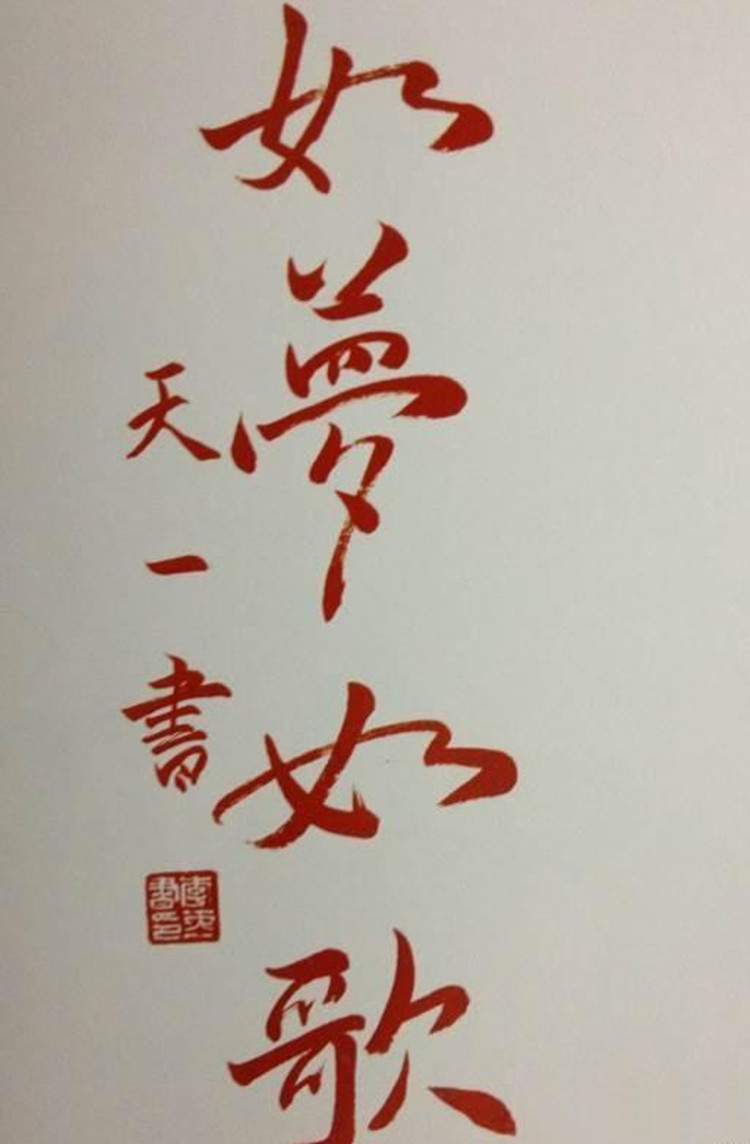 如夢如歌
天一書